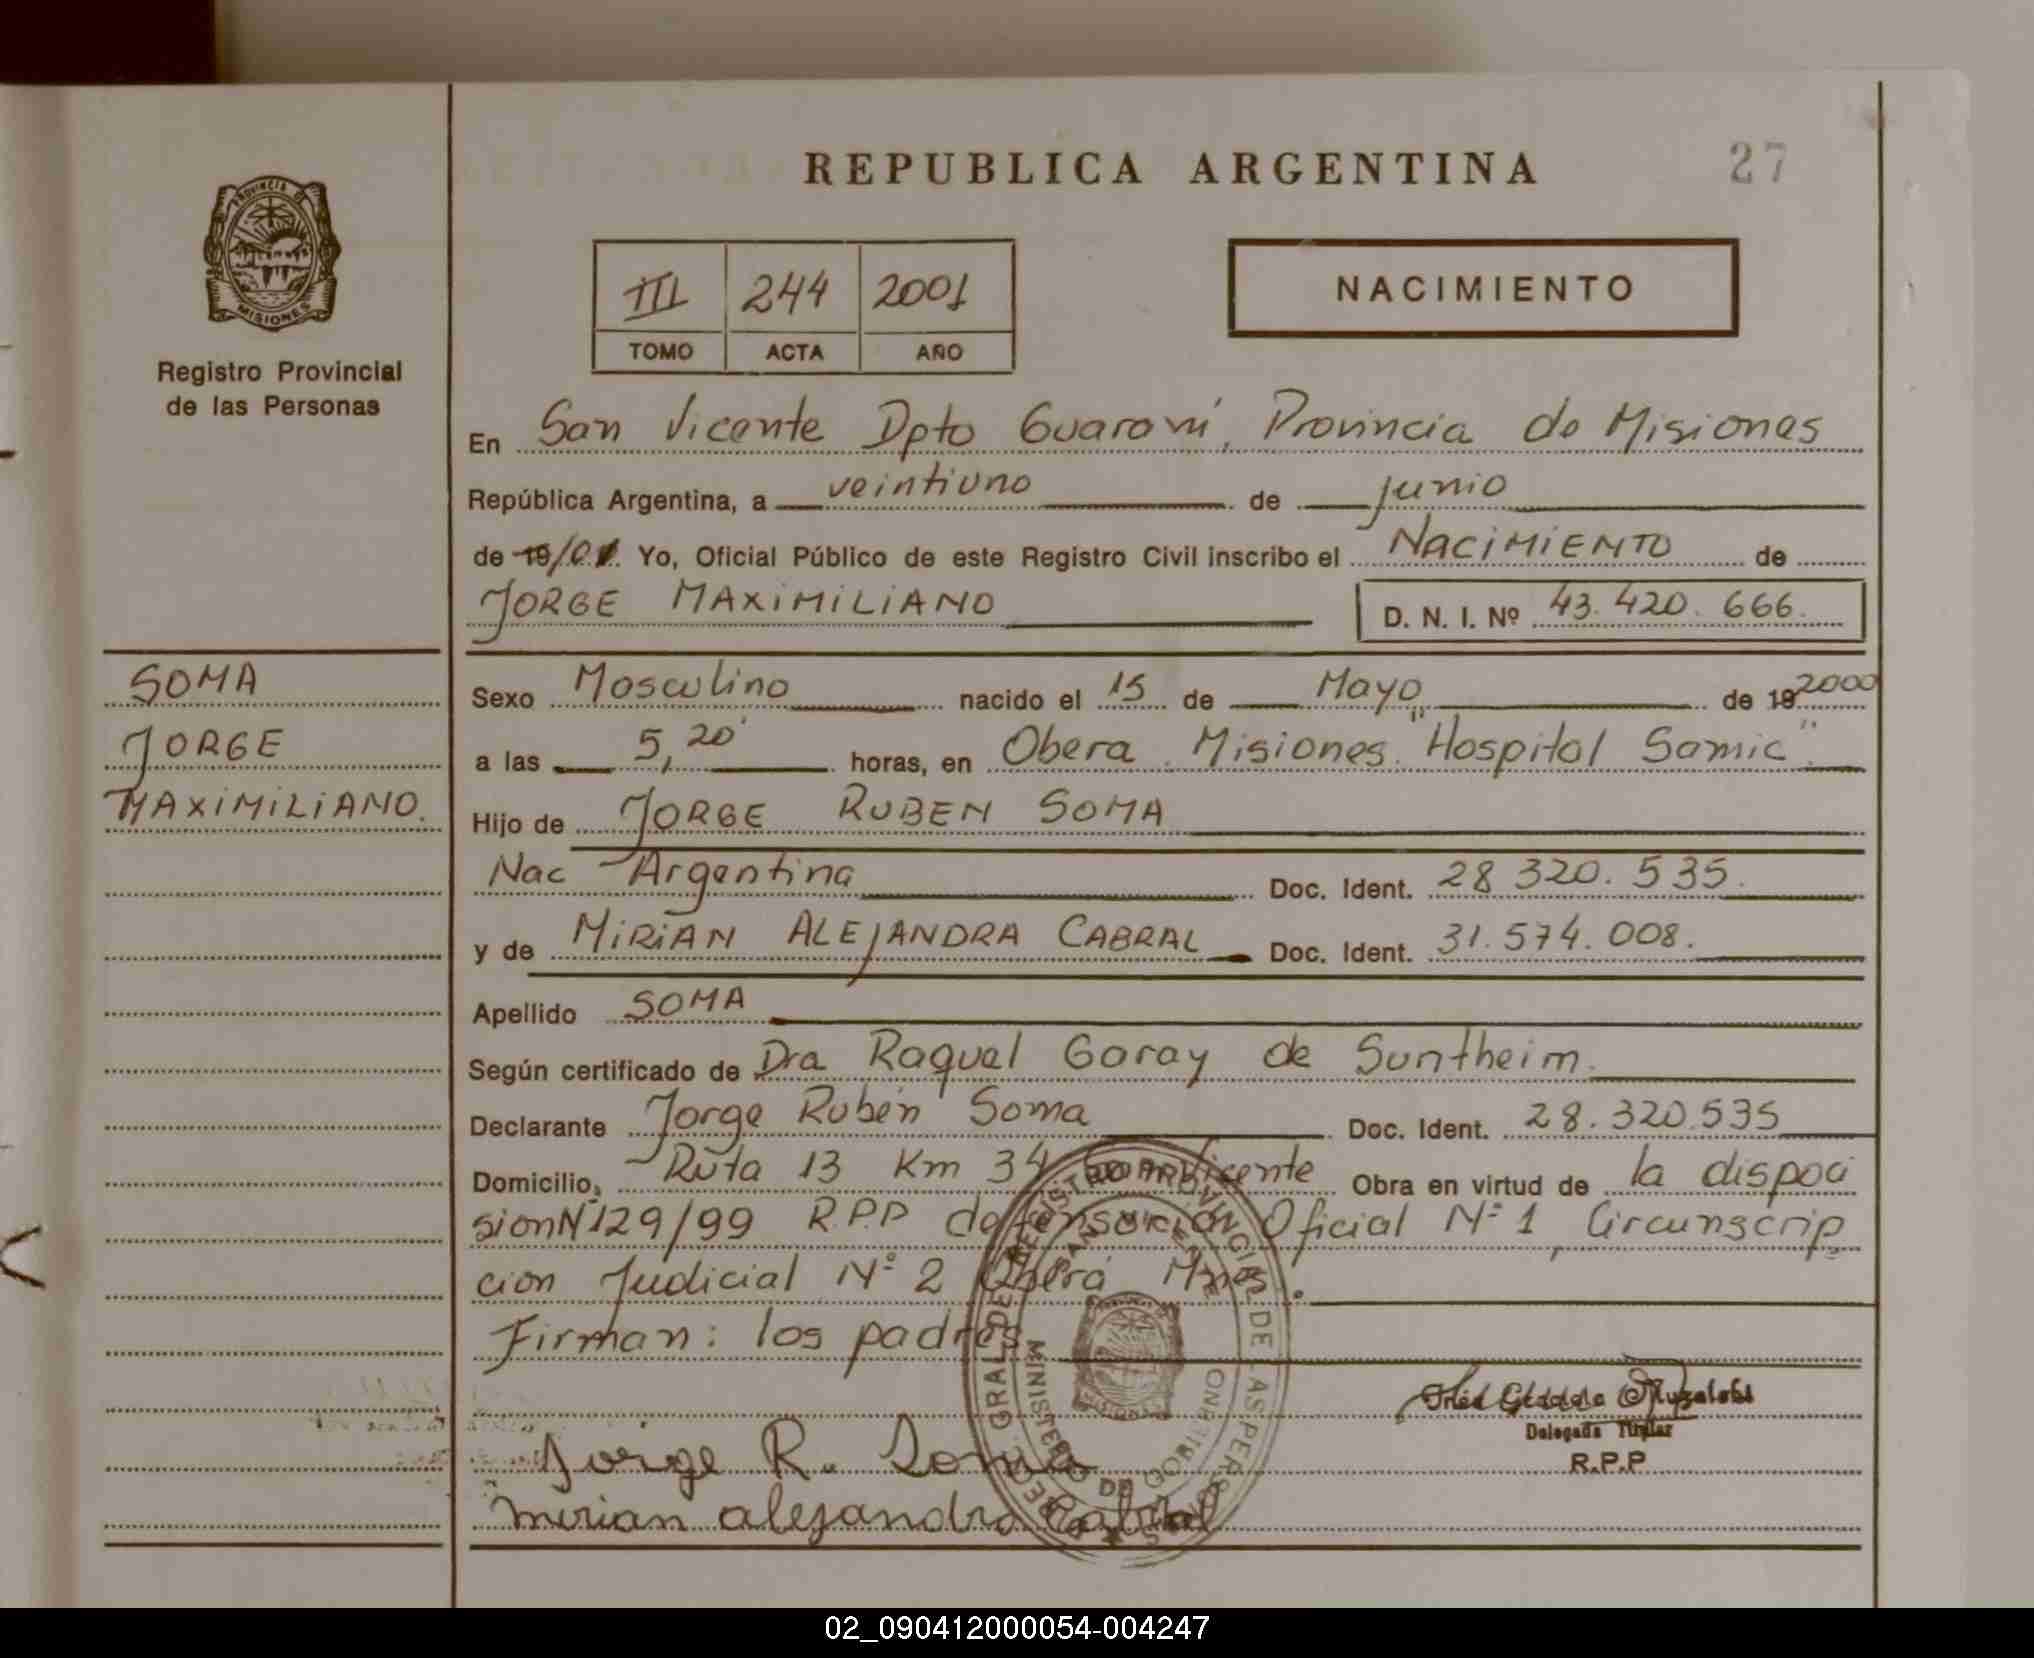 REPUBLICA ARGENTINA
27
PROVINCIA DE
MISIONES
Registro Provincial
de las Personas
III 244 2001
TOMO ACTA AÑO
NACIMIENTO
En San Vicente Dpto Guaraní, Provincia de Misiones
República Argentina, a veintiuno de junio
de 19/01. Yo, Oficial Público de este Registro Civil inscribo el NACIMIENTO de
JORGE MAXIMILIANO D. N. I. Nº 43.420.666.
SOMA
JORGE
MAXIMILIANO.
Sexo Masculino nacido el 15 de Mayo de 19 2000
a las 5,20 horas, en Obera Misiones "Hospital Samic"
Hijo de JORGE RUBEN SOMA
Nac Argentina Doc. Ident. 28 320.535.
y de MIRIAN ALEJANDRA CABRAL Doc. Ident. 31.574.008.
Apellido SOMA
Según certificado de Dra Raquel Garay de Suntheim.
Declarante Jorge Rubén Soma Doc. Ident. 28.320.535
Domicilio, Ruta 13 Km 34 Vicente Obra en virtud de la dispoci
sion Nº 129/99 R.P.P defensoria Oficial Nº 1, Circunscrip
cion Judicial Nº 2 Oberá Mnes.
Firman: los padres
REGISTRO PROVINCIAL DE LAS PERSONAS
SAN VICENTE
MINISTERIO DE GOBIERNO
Delegada Titular
R.P.P
Jorge R. Soma
mirian alejandra Cabral
02_090412000054-004247